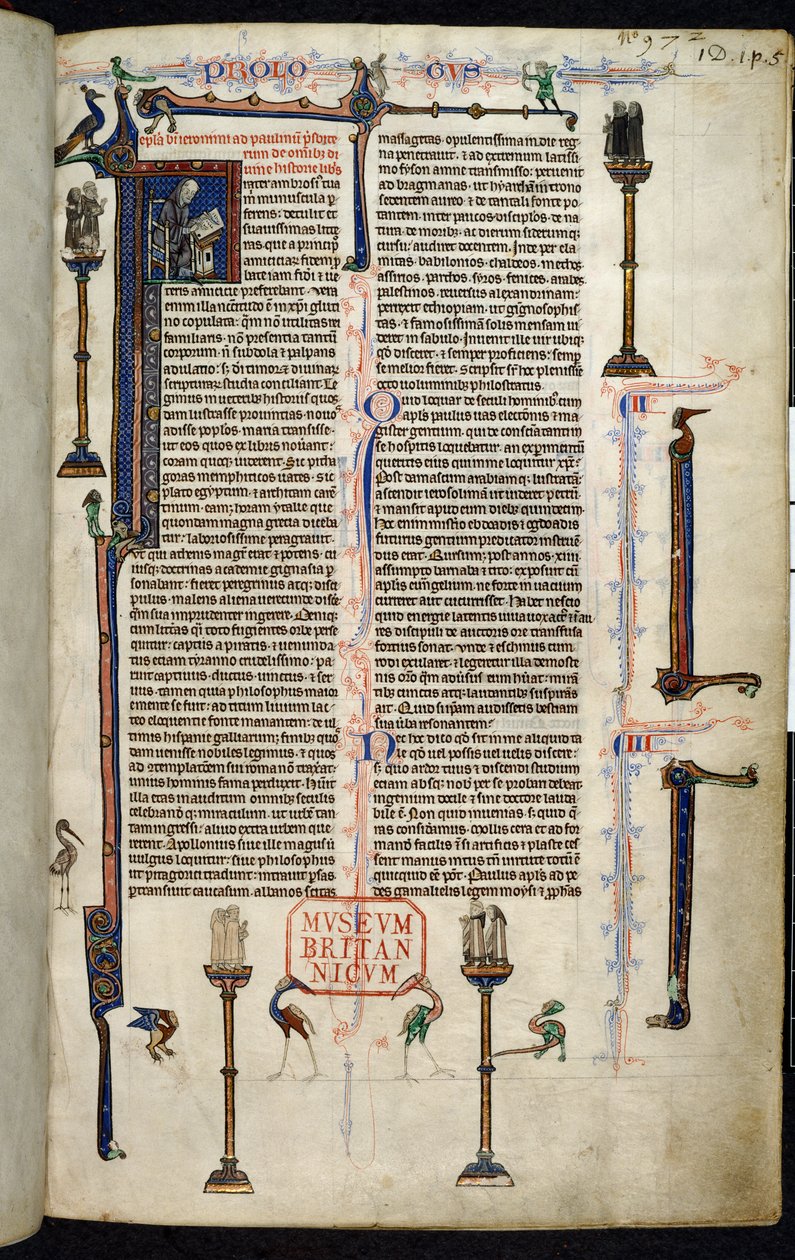 Nº 972
1 D. 1. p. 5
PROLOGVS
epl̄a b̄i ieronimi ad paulinū p̄sbite
rum de om̄ibꝫ di
uine historie lib̾s
rater ambrosi᾿ tua
m̄ munuscula p
ferens: detulit et
suauissimas litte
ras. que a principꝰ
amicitiaꝝ fidem ꝓ
bate iam fidei & ue
teris amicicie preferebant. Vera
enim illa n̄c̄citudo ē & xp̄i gluti
no copulata. qm̄ non utilitas rei
familiaris. nō presentia tantū
corporum. n̄ subdola & palpans
adulatio: sꝫ dei timor & diuinaꝝ
scripturaꝝ studia conciliant. Le
gimus in ueteribꝫ historiis quos
dam lustrasse prouintias. nouos
adisse poplōs. maria transisse.
ut eos quos ex libris nouerant:
coram quoqꝫ uiderent. Sic pitha
goras memphiticos uates. Sic
plato egyptum. & architam taren
tinum. eamqꝫ horam ytalie que
quondam magna grecia diceba
tur: laboriosissime peragrauit.
Vt qui athenis magr̄ erat & potens. cu
iusqꝫ doctrinas academie gignasia ꝑ
sonabant: fieret peregrinus atqꝫ disci
pulus. malens aliena uerecunde disce
qm̄ sua impudenter ingerere. Deniqꝫ
cum litt̄as q̄i toto fugientes orbe perse
quitur: captus a piratis. & uenunda
tus etiam tyranno crudelissimo. pa
ruit captiuus. uinctus. & ser
uus. tamen quia philosophus maior
emente se fuit: ad titum liuium lac
teo eloquentie fonte manantem: de ul
timis hispanie galliarumqꝫ finibꝫ quos
dam uenisse nobiles legimus. & quos
ad ɔtemplatōem sui roma nō traxat:
unius hominis fama perduxit. Habuit
illa etas inauditum omnibꝫ seculis
celebrandūqꝫ miraculum. ut urbē tan
tam ingressi: aliud extra urbem que
rerent. Apollonius siue ille magus ut
uulgus loquitur: siue philosophus
ut pitagorici tradunt: intrauit ꝑsas.
ꝑtransiuit caucasum. albanos scitas.
massagetas. opulentissima indie reg
na penetrauit. & ad extremum latissi
mo fyson amne transmisso: peruenit
ad bragmanas. ut hyarcham in trono
sedentem aureo. & de tantali fonte po
tantem. inter paucos discip̄los. de na
tura. de moribꝫ. ac dierum siderumqꝫ
cursu: audiret docentem. Inde per ela
mitas. babilonios. chaldeos. medos.
assirios. parthos. syros. fenices. arabes.
palestinos. reuersus alexandriam:
perrexit ethiopiam. ut gignosophis
tas. & famosissimam solis mensam ui
deret in sabulo. Inuenit ille uir ubiqꝫ
qd̄ disceret. & semper proficiens: semꝑ
se melior fieret. Scripsit sr̄ hoc plenissime
octo uoluminibꝫ philostratus.
Quid loquar de seculi hominibꝫ. cum
apl̄s paulus uas electionis & ma
gister gentium. qui de conscia tanti in
se hospitis loquebatur. an experimētū
queritis eius qui in me loquitur xp̄c:
Post damascum arabiamqꝫ lustratā:
ascendit ierosolimā ut uideret petrū
& mansit apud eum diebꝫ quindecim.
Hoc enim misterio ebdoadis & ogdoadis
futurus gentium predicator instruen
dus erat. Rursumqꝫ post annos. xiiii.
assumpto barnaba & tito: exposuit cū
apl̄is eum̄gelium. ne forte in uacuum
curreret aut cucurrisset. Habet nescio
quid energie latentis uiua uox actꝰ. & in au
res discipuli de auctoris ore transfusa
fortius sonat. Vnde & eschines cum
rodi exularet. & legeretur illa demoste
nis oro qm̄ aduersus eum habuerat: miran
tibꝫ cunctis atqꝫ laudantibꝫ suspirans
ait. Quid si ip̄am audissetis bestiam
sua uerba resonantem:
Nec hoc dico qd̄ sit in me aliquid ta
le qd̄ uel possis uel uelis discere:
sꝫ quo ardor tuus & discendi studium
etiam absqꝫ nob̄ per se probari debeat.
ingenium docile & sine doctore lauda
bile ē. Non quid inuenias. sꝫ quid q̄
ras consid̄amus. Mollis cera et ad for
mandū facilis & si artificis & plaste ces
sent manus. intus tn̄ uirtute totū ē
quicquid eē pōt. Paulus apl̄s ad pe
des gamalielis legem moysi & ꝓphas
II
III
MVSEVM
BRITAN
NICVM